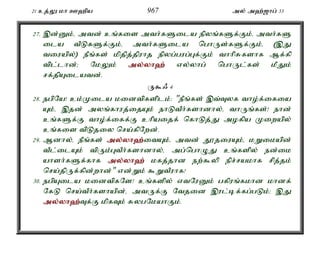 21 உத்லு மா ஊஹிய 967 அல் அஹ்ஜாப் 33
27. இன்னும், அவன் உங்களை அவர்களுடைய நிலங்களுக்கும், அவர்களு
டைய வீடுகளுக்கும், அவர்களுடைய பொருள்களுக்கும், (இது
வரையில்) நீங்கள் மிதித்திராத நிலப்பரப்புக்கும் வாரிசுகளாக ஆக்கி
விட்டான்; மேலும் அல்லாஹ் எல்லாப் பொருட்கள் மீதும்
சக்தியுடையவன்.
ருகூஃ 4
28. நபியே! உம்முடைய மனைவிகளிடம்; "நீங்கள் இவ்வுலக வாழ்க்கையை
யும், இதன் அலங்காரத்தையும் நாடுவீர்களானால், வாருங்கள்! நான்
உங்களுக்கு வாழ்க்கைக்கு உரியதைக் கொடுத்து அழகிய முறையில்
உங்களை விடுதலை செய்கிறேன்.
29. ஆனால், நீங்கள் அல்லாஹ்வையும், அவன் தூதரையும், மறுமையின்
வீட்டையும் விரும்புவீர்களானால், அப்பொழுது உங்களில் நன்மை
யாளர்களுக்காக அல்லாஹ் மகத்தான நற்கூலி நிச்சயமாக சித்தம்
செய்திருக்கின்றான்" என்றும் கூறுவீராக!
30. நபியுடைய மனைவிகளே! உங்களில் எவரேனும் பகிரங்கமான மானக்
கேடு செய்வீர்களாயின், அவருக்கு வேதனை இரட்டிக்கப்படும்; இது
அல்லாஹ்வுக்கு மிகவும் சுலபமேயாகும்.